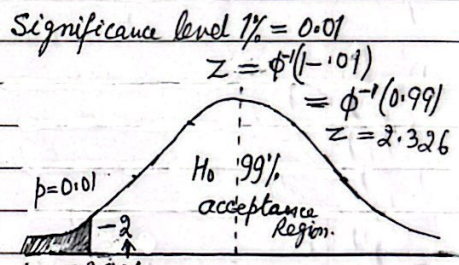 Significance level 1% = 0.01
Z = ϕ⁻¹(1-.01)
= ϕ⁻¹(0.99)
Z = 2.326
H₀ 99%
p=0.01
acceptance
Region.
-2